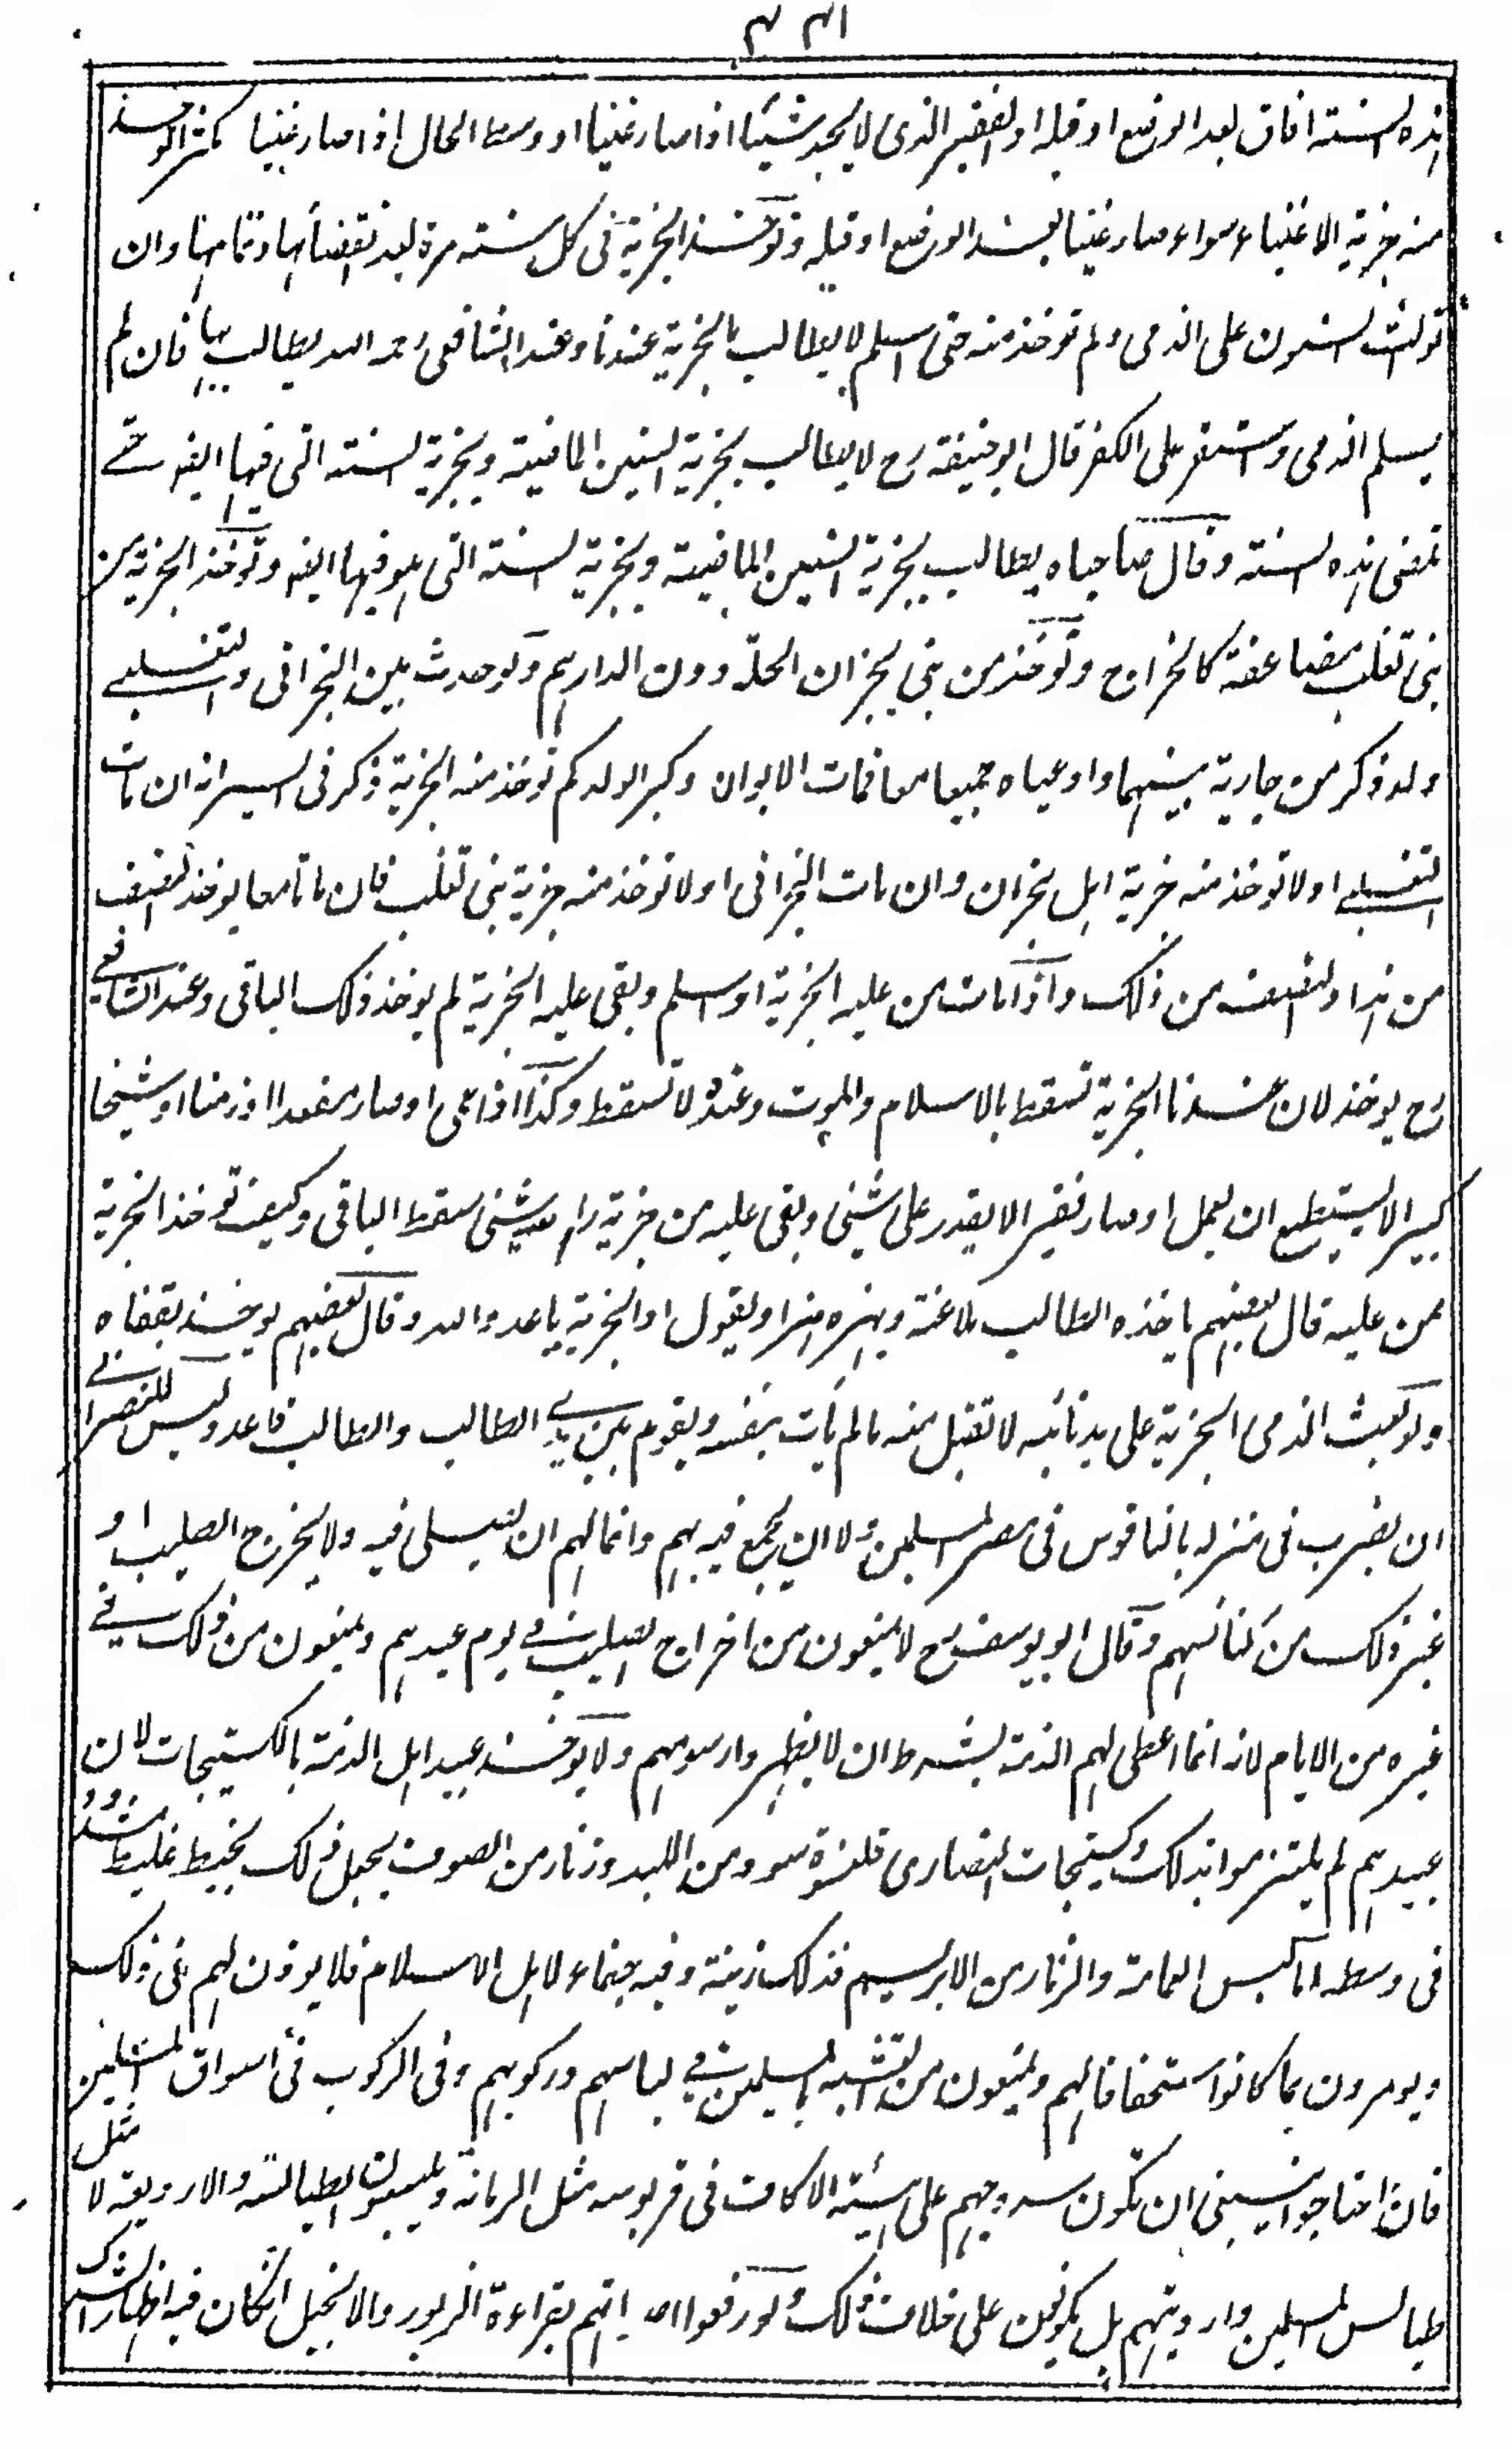 هذه السنة افاق بعد الوضع او قبله او الفقير الذى لا يجد شيئا اذا صار غنيا او وسط الحال اذا صار غنيا مكثرا توخذ
منه جزية الاغنياء سواء صار غنيا بعد الوضع او قبله وتوخذ الجزية فى كل سنة مرة بعد انقضائها وتمامها وان
توالت السنون على الذمى ولم توخذ منه حتى اسلم لا يطالب بالجزية عندنا وعند الشافعى رحمه الله يطالب بها فان لم
يسلم الذمى واستقر على الكفر قال ابو حنيفة رح لا يطالب بجزية السنين الماضية وبجزية السنة التى فيها ايضا حتى
تمضى هذه السنة وقال صاحباه يطالب بجزية السنين الماضية وبجزية السنة التى هو فيها ايضا وتوخذ الجزية من
بنى تغلب مضاعفة كالخراج وتوخذ من بنى نجران الحلة دون الدراهم ولو حدث بين النجرانى والتغلبى
ولد ذكر من جارية بينهما وادعياه جميعا معا فمات الابوان وكبر الولد كم توخذ منه الجزية ذكر فى السير انه ان مات
التغلبى اولا توخذ منه جزية اهل نجران وان مات النجرانى اولا توخذ منه جزية بنى تغلب فان ماتا معا يوخذ النصف
من هذا والنصف من ذلك واذا مات من عليه الجزية او اسلم وبقى عليه الجزية لم يوخذ ذلك الباقى وعند الشافعى
رح يوخذ لان عندنا الجزية تسقط بالاسلام والموت وعنده لا تسقط وكذا اذا عمى او صار مقعدا او زمنا او شيخا
كبيرا لا يستطيع ان يعمل او صار فقيرا لا يقدر على شئ وبقى عليه من جزية راسه شئ سقط الباقى وكيف توخذ الجزية
ممن عليه قال بعضهم ياخذه الطالب ويهزه هزا ويقول اد الجزية يا عدو الله وقال بعضهم يوخذ بقفاه
ولو بعث الذمى الجزية على يد نائبه لا تقبل منه ما لم يات بنفسه ويقوم بين يدى الطالب والطالب قاعد وليس للنصرانى
ان يضرب فى منزله بالناقوس فى مصر المسلمين ولا ان يجمع فيه بهم وانما لهم ان يصلى فيه ولا يخرج الصليب او
غير ذلك من كنائسهم وقال ابو يوسف رح لا يمنعون من اخراج الصليب فى يوم عيدهم ويمنعون من ذلك فى
غيره من الايام لانه انما اعطى لهم الذمة بشرط ان لا يظهروا رسومهم ولا يوخذ عبيد اهل الذمة بالكستيجات لان
عبيدهم لم يلتزموا بذلك وكستيجات النصارى قلنسوة سود من اللبد وزنار من الصوف يحبل ذلك بخيط غليظ مشدود
فى وسطه اما لبس العمامة والزنار من الابريسم فذلك زينة وفيه جفاء لاهل الاسلام فلا يوذن لهم فى ذلك
ويومرون بما كانوا استخفافا لهم ويمنعون من التشبه بالمسلمين فى لباسهم وركوبهم وفى الركوب فى اسواق المسلمين
فان احتاجوا ينبغى ان تكون سروجهم على هيئة الاكاف فى قربوسه مثل الرمانة ويلبسون الطيالسة والاردية لا مثل
طيالس المسلمين وارديتهم بل يكون على خلاف ذلك ولو رفعوا اصواتهم بقراءة الزبور والانجيل ان كان فيه اظهار الشرك